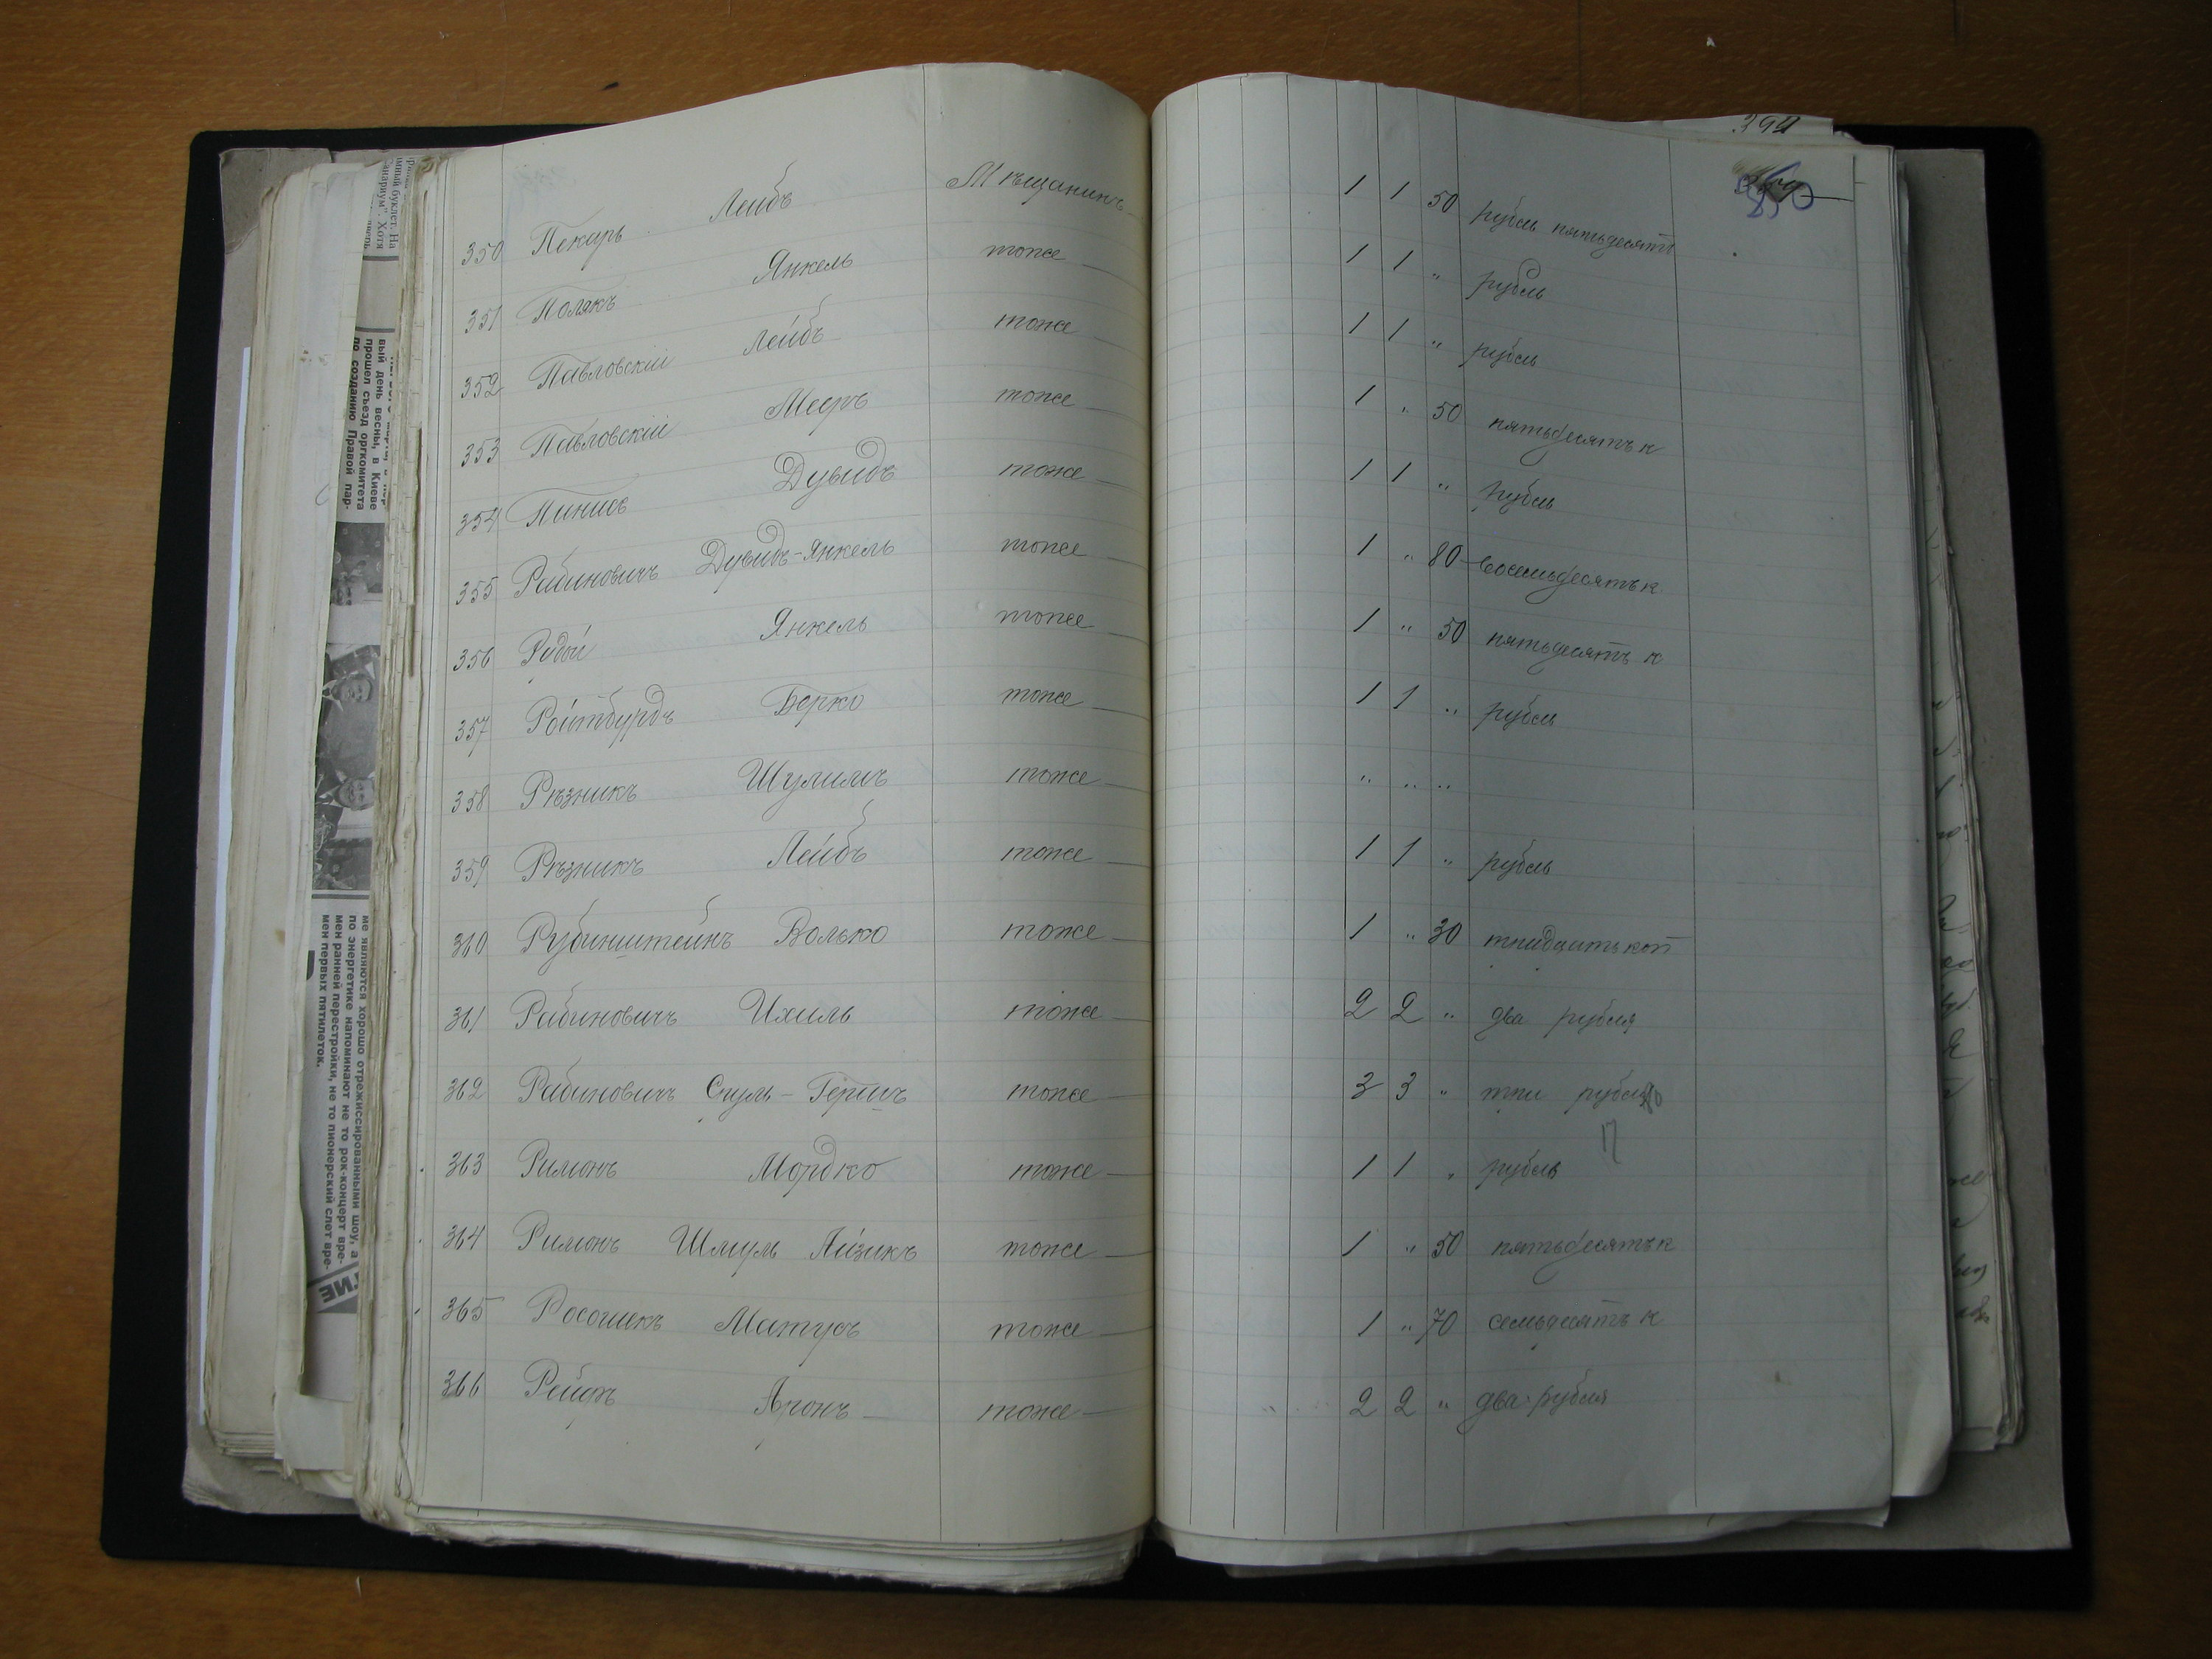 394
350 Пекарь Лейбъ Мѣщанинъ 1 1 50 рубль пятьдесятъ
351 Полякъ Янкель тоже 1 1 " рубль
352 Павловскій Лейбъ тоже 1 1 " рубль
353 Павловскій Мееръ тоже 1 " 50 пятьдесятъ к
354 Пинисъ Дувидъ тоже 1 1 " рубль
355 Рабиновичъ Дувидъ-Янкель тоже 1 " 80 восемьдесятъ к
356 Рудой Янкель тоже 1 " 50 пятьдесятъ к
357 Ройтбурдъ Берко тоже 1 1 " рубль
358 Рѣзникъ Шулимъ тоже " " "
359 Рѣзникъ Лейбъ тоже 1 1 " рубль
360 Рубинштейнъ Волько тоже 1 " 30 тридцать коп
361 Рабиновичъ Ихиль тоже 2 2 " два рубля
362 Рабиновичъ Сруль-Гершъ тоже 3 3 " три рубля
17
363 Римонъ Мордко тоже 1 1 " рубль
364 Римонъ Шмуль Айзикъ тоже 1 " 50 пятьдесятъ к
365 Росошекъ Матусъ тоже 1 " 70 семьдесятъ к
366 Рейфъ Аронъ тоже 2 2 " два рубля
вый день весны, в Киеве
прошел съезд оргкомитета
по созданию Правой пар-
ме являются хорошо отрежиссированными шоу, а
по энергетике напоминают не то рок-концерт вре-
мен ранней перестройки, не то пионерский слет вре-
мен первых пятилеток.